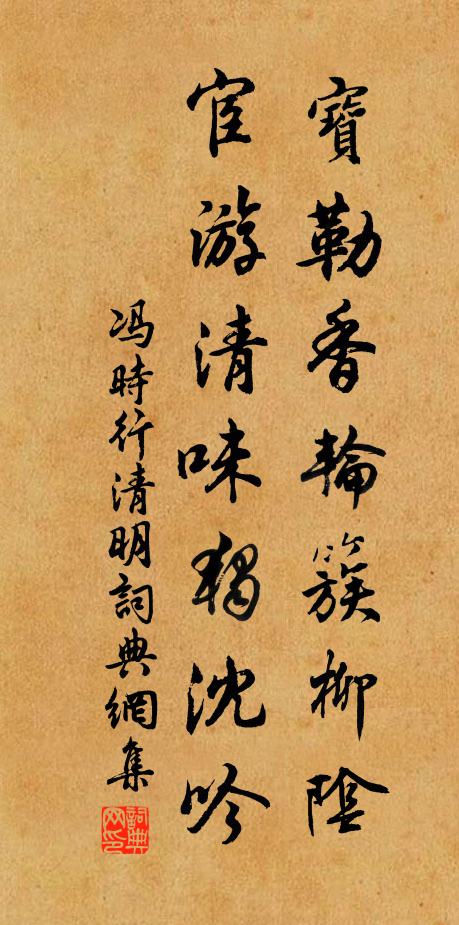 寶勒香輪簇柳陰
宦游清味獨沈吟
冯時行清明詞典網集
詞典网印